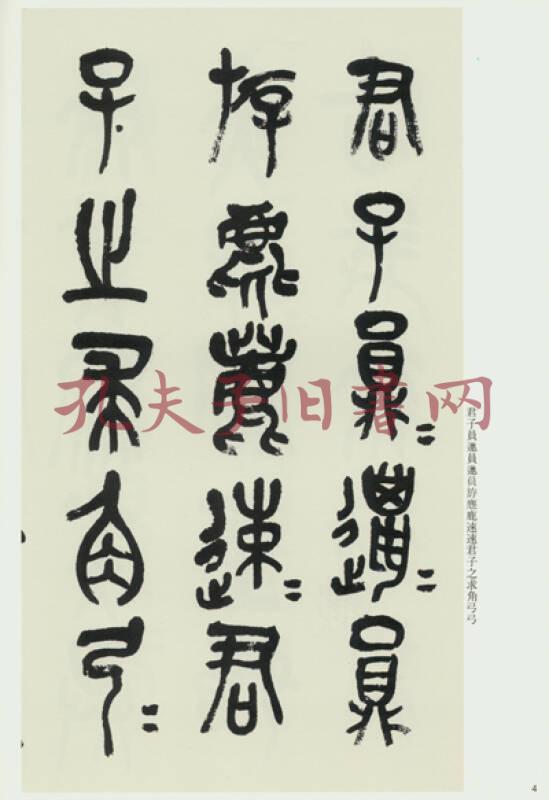 君子員〻邋〻員
斿麀鹿速〻君
子之求角弓〻
君子員邋員邋員斿麀鹿速速君子之求角弓弓
孔夫子旧书网
4